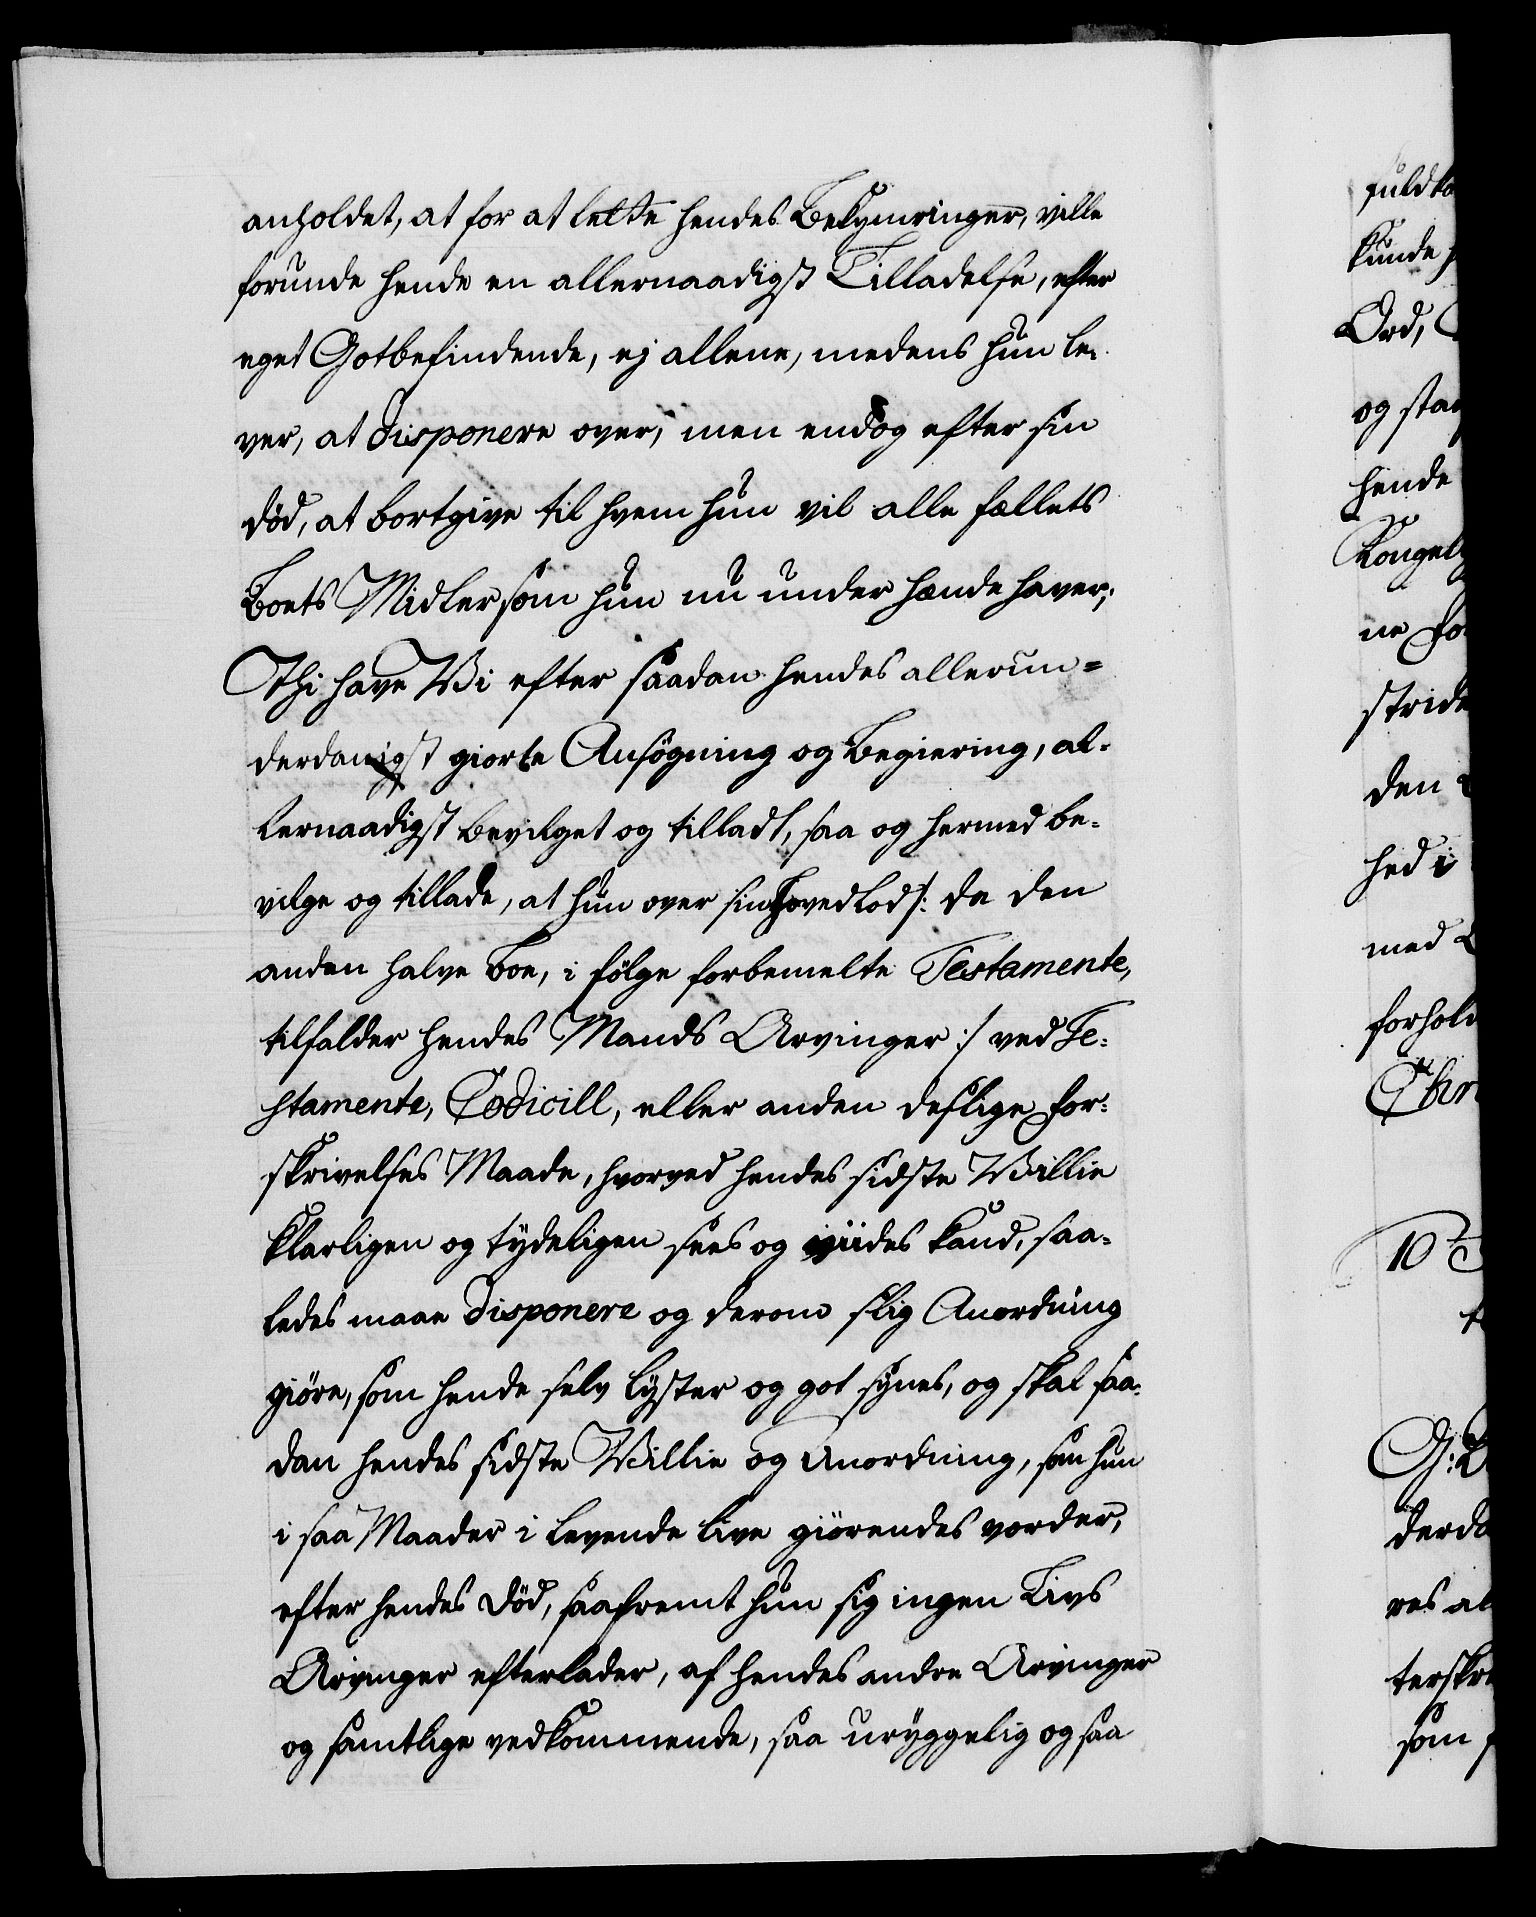 anholdet, at for at lette hendes Bekymringer, ville
forunde hende en allernaadigst Tilladelse, efter
eget Gotbefindende, ej allene, medens hun le-
ver, at disponere over, men endog efter sin
død, at bortgive til hvem hun vil alle fællets
Boets Midler som hun nu under hænde haver;
Thi have Vi efter saadan hendes allerun=
derdanigst giorte Ansøgning og Begiering, al-
lernaadigst bevilget og tilladt, saa og hermed be-
vilge og tillade, at hun over sin Hovedlod /: da den
anden halve Boe, i følge forbemelte Testamente,
tilfalder hendes Mands Arvinger :/ ved Te-
stamente, Codicill, eller anden deslige For-
skrivelses Maade, hvorved hendes sidste Villie
klarligen og tydeligen sees og viides kand, saa-
ledes maae disponere og derom slig Anordning
giøre, som hende selv lyster og got synes, og skal saa-
dan hendes sidste Villie og Anordning, som hun
i saa Maader i levende live giørendes vorder,
efter hendes død, saafremt hun sig ingen Livs
Arvinger efterlader, af hendes andre Arvinger
og samtlige vedkommende, saa uryggelig og saa
fuldko
kunde
Ord,
og sta
hende
Kongel
ne For
stride
den
hed i
med
forhol
Chr
10
G: L
derda
res al
terskre
som